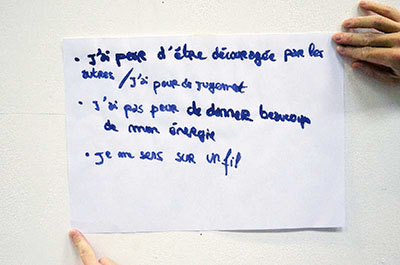 • J'ai peur d'être découragée par les
autres / J'ai peur de jugemet
• J'ai pas peur de donner beaucoup
de mon énergie
• Je me sens sur un fil